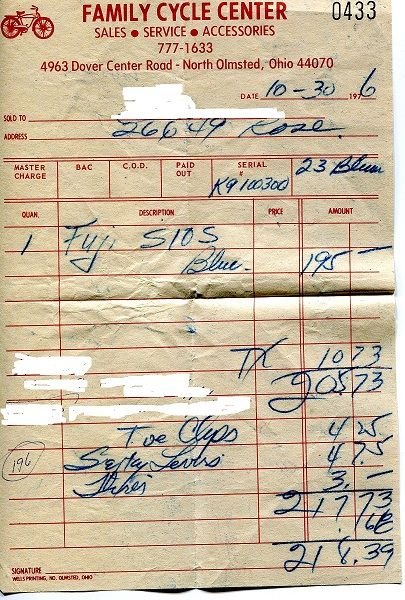 FAMILY CYCLE CENTER 0433
SALES • SERVICE • ACCESSORIES
777-1633
4963 Dover Center Road - North Olmsted, Ohio 44070
DATE 10-30 1976
SOLD TO
ADDRESS 26649 Rose
MASTER CHARGE BAC C.O.D. PAID OUT SERIAL # K9100300 23 Blue
QUAN. DESCRIPTION PRICE AMOUNT
1 Fuji S10S
Blue 195 —
TX 10 73
205.73
Toe Clips 4 25
Levers 4 75
3. —
217 73
.66
218.39
196
SIGNATURE
WELLS PRINTING, NO. OLMSTED, OHIO